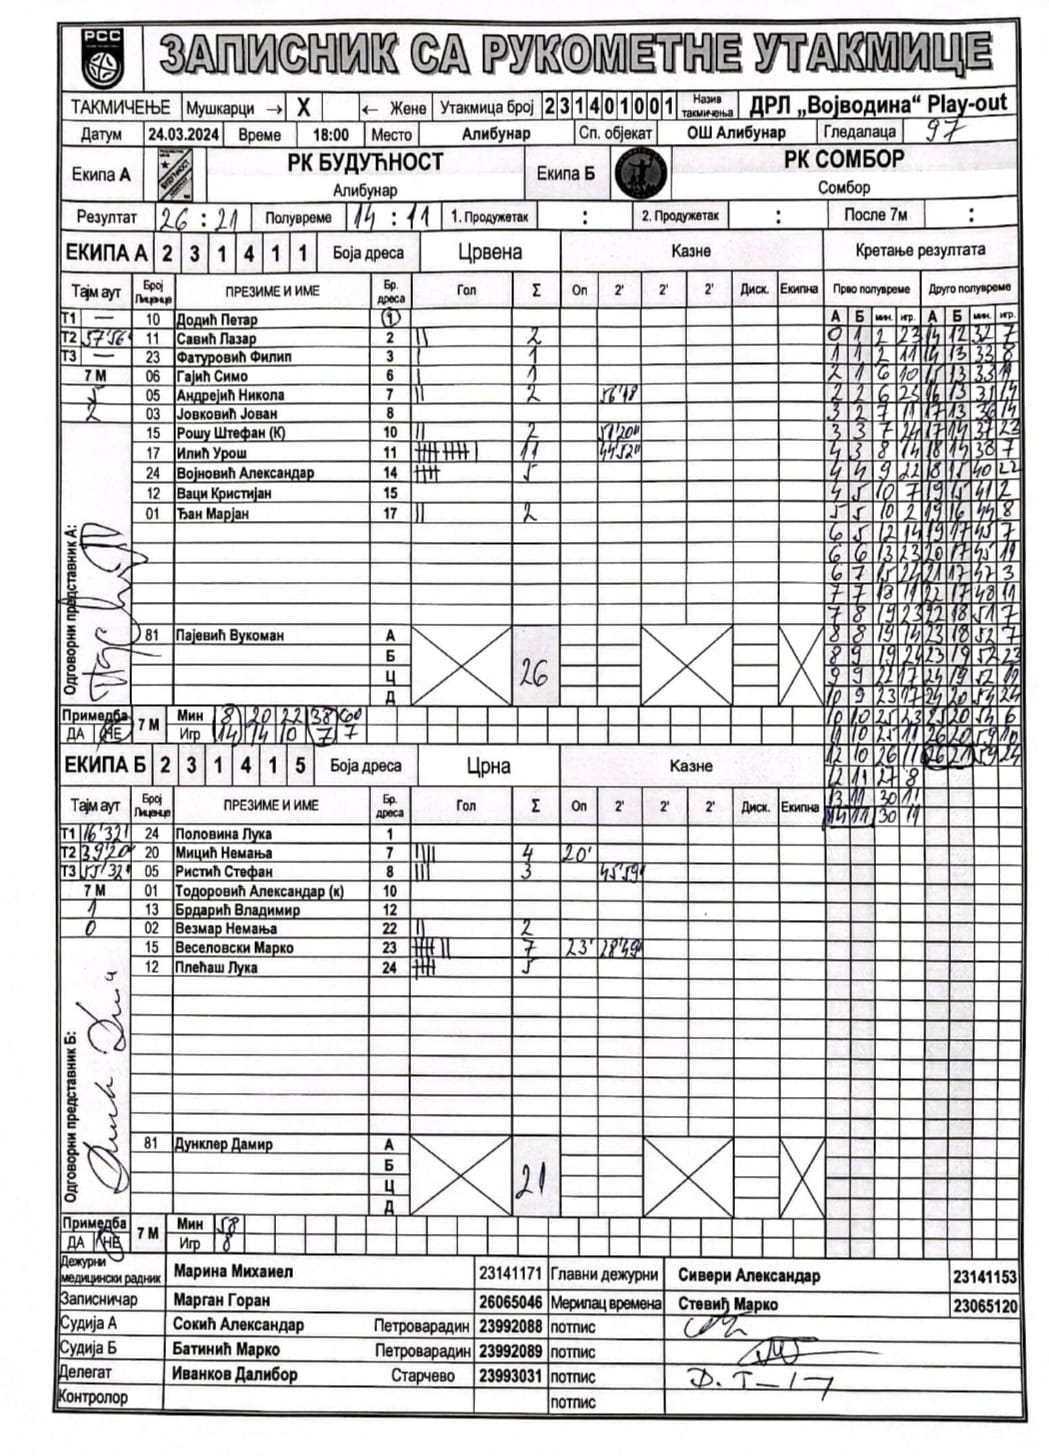 РСС
ЗАПИСНИК СА РУКОМЕТНЕ УТАКМИЦЕ
ТАКМИЧЕЊЕ Мушкарци → X ← Жене Утакмица број 231401001 Назив такмичења ДРЛ „Војводина“ Play-out
Датум 24.03.2024 Време 18:00 Место Алибунар Сп. објекат ОШ Алибунар Гледалаца 97
Екипа А РК БУДУЋНОСТ Алибунар Екипа Б РК СОМБОР Сомбор
Резултат 26 : 21 Полувреме 14 : 11 1. Продужетак : 2. Продужетак : После 7м :
ЕКИПА А 2 3 1 4 1 1 Боја дреса Црвена Казне Кретање резултата
Тајм аут Број Лиценце ПРЕЗИМЕ И ИМЕ Бр. дреса Гол Σ Оп 2' 2' 2' Диск. Екипна Прво полувреме Друго полувреме
А Б мин. игр. А Б мин. игр.
Т1 — 10 Додић Петар 1
Т2 57'56 11 Савић Лазар 2 || 2
Т3 — 23 Фатуровић Филип 3 | 1
7 М 06 Гајић Симо 6 | 1
5 05 Андрејић Никола 7 || 2 56'48
2 03 Јовковић Јован 8
15 Рошу Штефан (К) 10 || 2 51'20"
17 Илић Урош 11 11 44'52"
24 Војновић Александар 14 5
12 Ваци Кристијан 15
01 Ђан Марјан 17 || 2
0 1 2 23 14 12 32 7
1 1 2 11 14 13 33 8
2 1 6 10 15 13 33 11
2 2 6 23 16 13 14
3 2 7 11 17 13 36 14
3 3 7 24 17 14 37 23
4 3 8 14 18 14 38 7
4 4 9 22 18 15 40 22
4 5 10 7 19 15 41 2
5 5 10 2 19 16 44 8
6 5 12 14 19 17 45 7
6 6 13 23 20 17 45 11
6 7 15 24 21 17 47 3
7 7 18 11 22 17 48 11
7 8 19 23 22 18 51 7
8 8 19 14 23 18 52 7
8 9 19 24 23 19 52 23
9 9 22 17 24 19 52
10 9 23 17 24 20 54 24
10 10 25 23 25 20 54 6
11 10 25 11 26 20 59 10
12 10 26 11 26 21 59 24
12 11 27 8
13 11 30 11
14 11 30 11
Одговорни представник А:
81 Пајевић Вукоман А
Б
Ц
Д
26
Примедба ДА НЕ 7 М Мин 8 20 22 38 60
Игр 14 14 10 7 7
ЕКИПА Б 2 3 1 4 1 5 Боја дреса Црна Казне
Тајм аут Број Лиценце ПРЕЗИМЕ И ИМЕ Бр. дреса Гол Σ Оп 2' 2' 2' Диск. Екипна
Т1 16'32 24 Половина Лука 1
Т2 39'20 20 Мицић Немања 7 |||| 4 20'
Т3 55'32 05 Ристић Стефан 8 ||| 3 45'59
7 М 01 Тодоровић Александар (к) 10
1 13 Брдарић Владимир 12
0 02 Везмар Немања 22 || 2
15 Веселовски Марко 23 7 23' 28'49
12 Плећаш Лука 24 5
Одговорни представник Б:
81 Дунклер Дамир А
Б
Ц
Д
21
Примедба ДА НЕ 7 М Мин 58
Игр 8
Дежурни медицински радник Марина Михаиел 23141171 Главни дежурни Сивери Александар 23141153
Записничар Марган Горан 26065046 Мерилац времена Стевић Марко 23065120
Судија А Сокић Александар Петроварадин 23992088 потпис
Судија Б Батинић Марко Петроварадин 23992089 потпис
Делегат Иванков Далибор Старчево 23993031 потпис
Контролор потпис